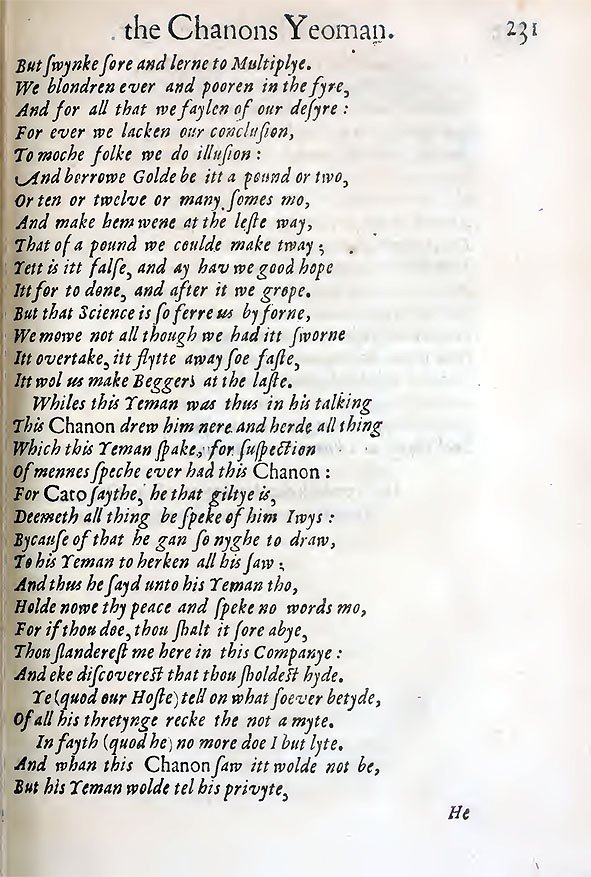 the Chanons Yeoman. 231
But ſwynke ſore and lerne to Multiplye.
We blondren ever and pooren in the fyre,
And for all that we faylen of our deſyre :
For ever we lacken our concluſion,
To moche folke we do illuſion :
And borrowe Golde be itt a pound or two,
Or ten or twelve or many ſomes mo,
And make hem wene at the leſte way,
That of a pound we coulde make tway ;
Yett is itt falſe, and ay hav we good hope
Itt for to done, and after it we grope.
But that Science is ſo ferre us byforne,
We mowe not all though we had itt ſworne
Itt overtake, itt flytte away ſoe faſte,
Itt wol us make Beggers at the laſte.
Whiles this Yeman was thus in his talking
This Chanon drew him nere and herde all thing
Which this Yeman ſpake, for ſuſpection
Of mennes ſpeche ever had this Chanon :
For Cato ſaythe, he that giltye is,
Deemeth all thing be ſpeke of him Iwys :
Bycauſe of that he gan ſo nyghe to draw,
To his Yeman to herken all his ſaw ;
And thus he ſayd unto his Yeman tho,
Holde nowe thy peace and ſpeke no words mo,
For if thou doe, thou ſhalt it ſore abye,
Thou ſlandereſt me here in this Companye :
And eke diſcovereſt that thou ſholdeſt hyde.
Ye (quod our Hoſte) tell on what ſoever betyde,
Of all his thretynge recke the not a myte.
In fayth (quod he) no more doe I but lyte.
And whan this Chanon ſaw itt wolde not be,
But his Yeman wolde tel his privyte,
He